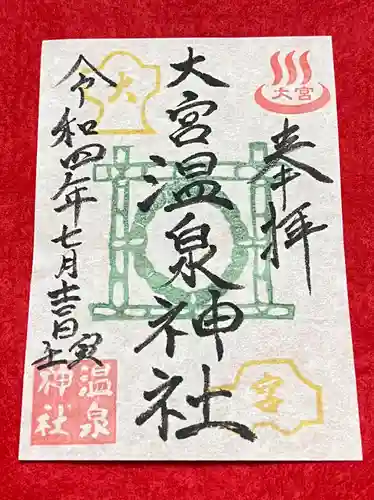 奉拝
大宮
大宮温泉神社
令和四年七月
寅
温泉
神社
大